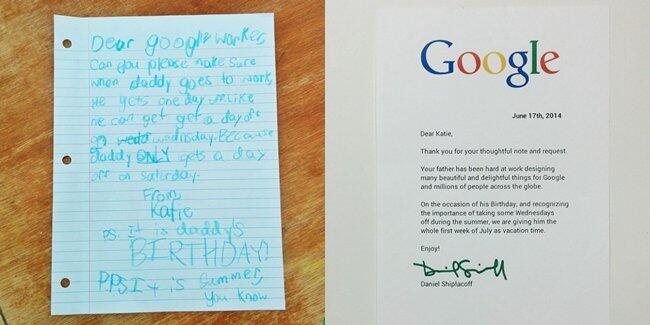 Dear google worker,
Can you please make sure
when daddy goes to work,
He gets one day off. Like
he can get get a day off
on wednesday. Because
daddy ONLY gets a day
off on saturday.
From,
Katie
P.S. It is daddy's
BIRTHDAY!
P.P.S It is summer,
you know
Google
June 17th, 2014
Dear Katie,
Thank you for your thoughtful note and request.
Your father has been hard at work designing
many beautiful and delightful things for Google
and millions of people across the globe.
On the occasion of his Birthday, and recognizing
the importance of taking some Wednesdays
off during the summer, we are giving him the
whole first week of July as vacation time.
Enjoy!
Daniel Shiplacoff